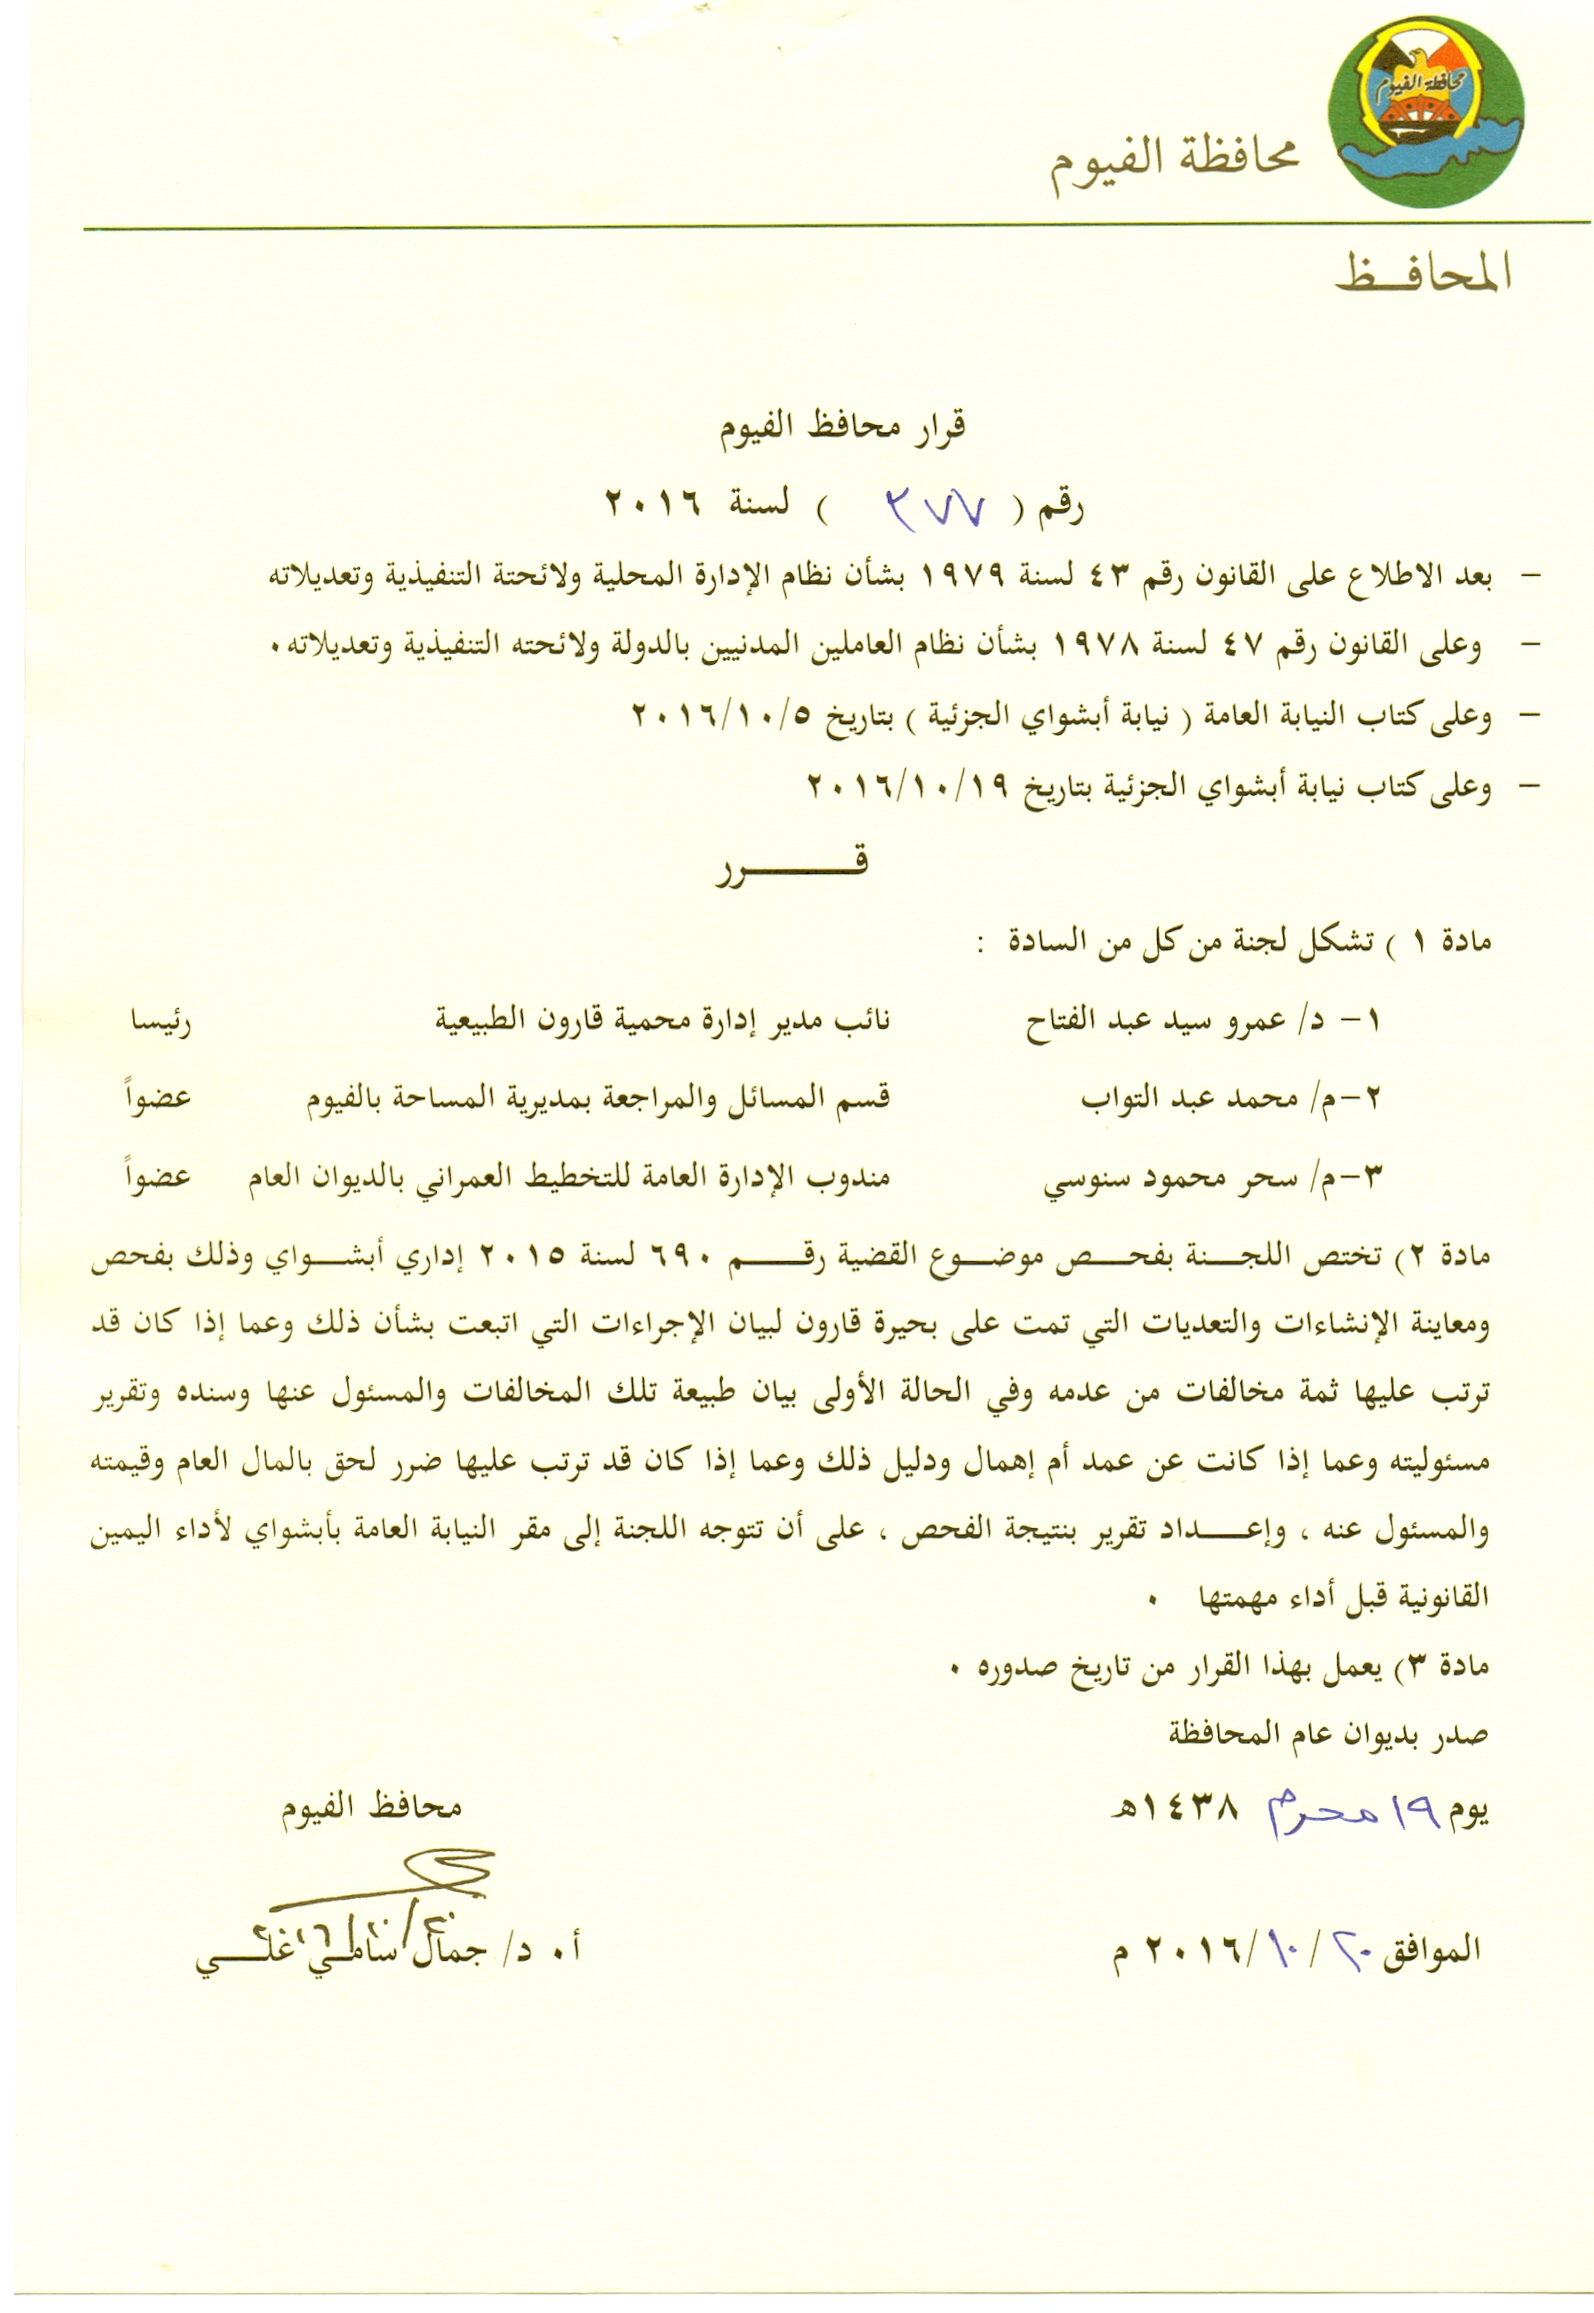 محافظة الفيوم
محافظة الفيوم
المحافـظ
قرار محافظ الفيوم
رقم ( ٣٧٧ ) لسنة ٢٠١٦
– بعد الاطلاع على القانون رقم ٤٣ لسنة ١٩٧٩ بشأن نظام الإدارة المحلية ولائحتة التنفيذية وتعديلاته
– وعلى القانون رقم ٤٧ لسنة ١٩٧٨ بشأن نظام العاملين المدنيين بالدولة ولائحته التنفيذية وتعديلاته٠
– وعلى كتاب النيابة العامة ( نيابة أبشواي الجزئية ) بتاريخ ٢٠١٦/١٠/٥
– وعلى كتاب نيابة أبشواي الجزئية بتاريخ ٢٠١٦/١٠/١٩
قـــــــرر
مادة ١ ) تشكل لجنة من كل من السادة :
١– د/ عمرو سيد عبد الفتاح نائب مدير إدارة محمية قارون الطبيعية رئيسا
٢–م/ محمد عبد التواب قسم المسائل والمراجعة بمديرية المساحة بالفيوم عضواً
٣–م/ سحر محمود سنوسي مندوب الإدارة العامة للتخطيط العمراني بالديوان العام عضواً
مادة ٢) تختص اللجـــنة بفحـــص موضـــوع القضية رقـــــم ٦٩٠ لسنة ٢٠١٥ إداري أبشـــواي وذلك بفحص
ومعاينة الإنشاءات والتعديات التي تمت على بحيرة قارون لبيان الإجراءات التي اتبعت بشأن ذلك وعما إذا كان قد
ترتب عليها ثمة مخالفات من عدمه وفي الحالة الأولى بيان طبيعة تلك المخالفات والمسئول عنها وسنده وتقرير
مسئوليته وعما إذا كانت عن عمد أم إهمال ودليل ذلك وعما إذا كان قد ترتب عليها ضرر لحق بالمال العام وقيمته
والمسئول عنه ، وإعـــداد تقرير بنتيجة الفحص ، على أن تتوجه اللجنة إلى مقر النيابة العامة بأبشواي لأداء اليمين
القانونية قبل أداء مهمتها ٠
مادة ٣) يعمل بهذا القرار من تاريخ صدوره ٠
صدر بديوان عام المحافظة
يوم ١٩ محرم ١٤٣٨هـ محافظ الفيوم
٢٠١٦/١٠/٢٠
الموافق ٢٠ / ١٠ /٢٠١٦ م أ٠ د/ جمال سامـي علـــي